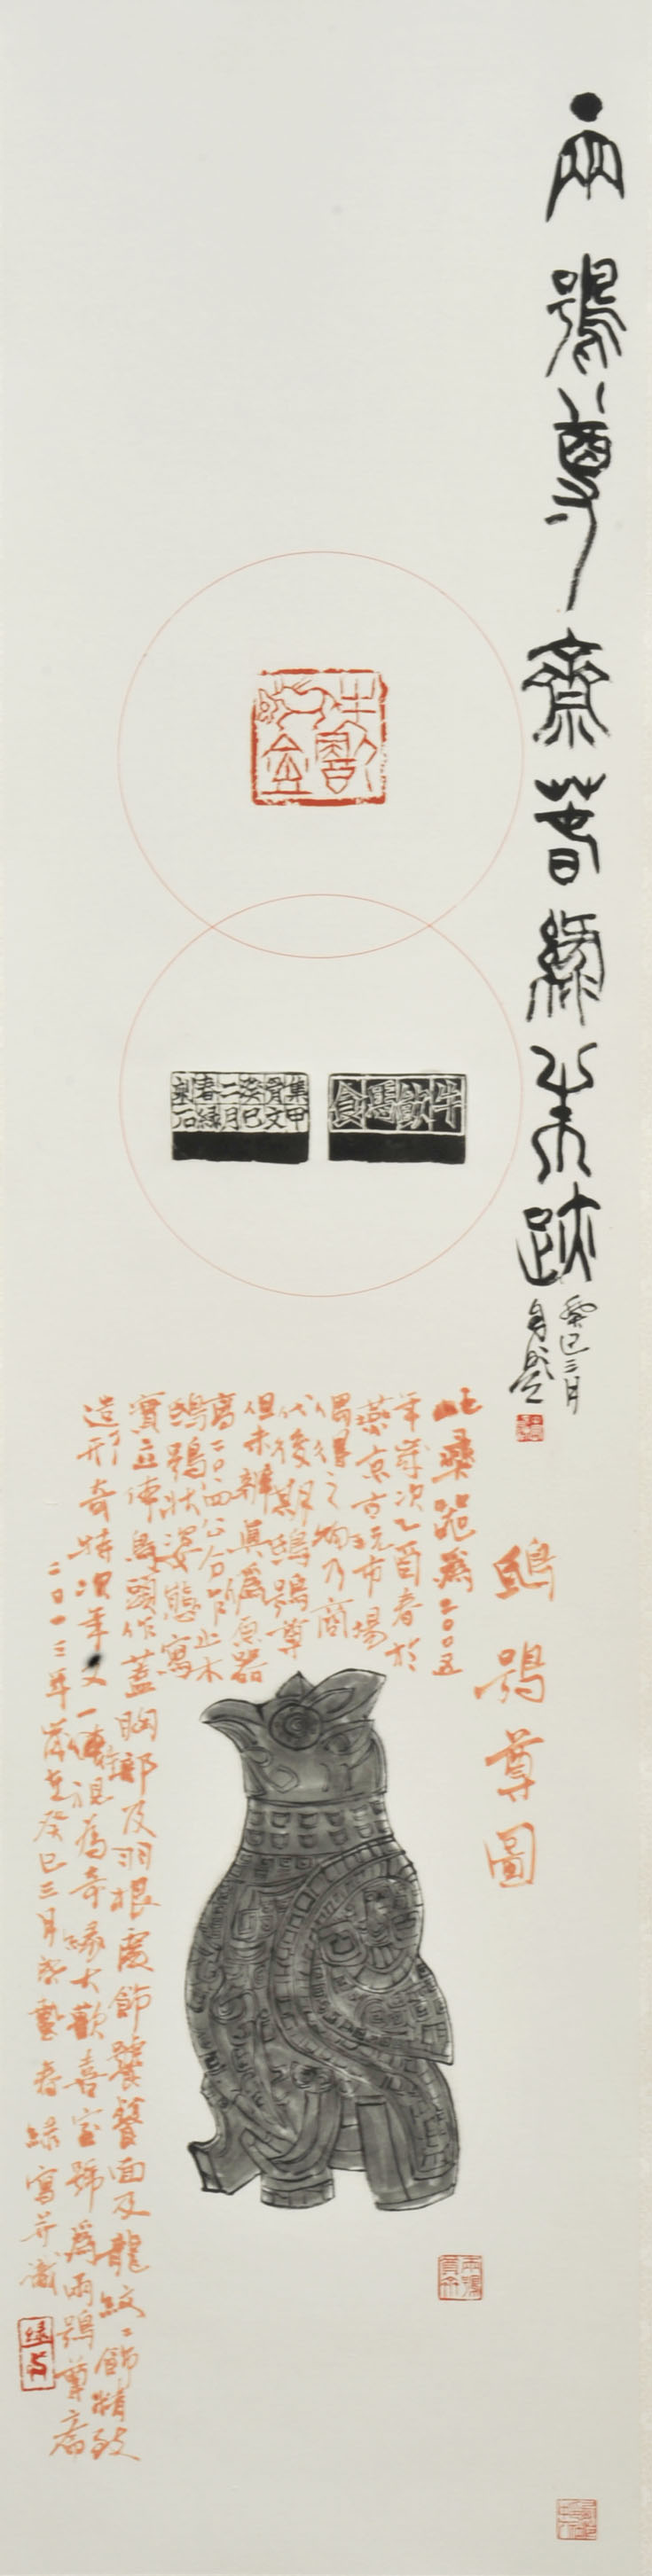 兩鴞尊齋春緣朱跡
癸巳三月
自題
牛歡
虎食
牛歡馬食
集甲
骨文
癸巳
二月
春緣
刻石
鴟鴞尊圖
此彝器為二〇〇五
年歲次乙酉春於
燕京古玩市場
偶得之物乃商
代後期鴟鴞尊
但未辨真僞原器
高二〇四公分作止木
鴟鴞狀姿態寫
實立体鳥頭作蓋胸部及羽根處飾饕餮面及龍紋紋飾精致
造形奇特次年又一傳視為奇緣大歡喜室號為兩鴞尊齋
二〇一三年歲在癸巳三月春緣寫并識